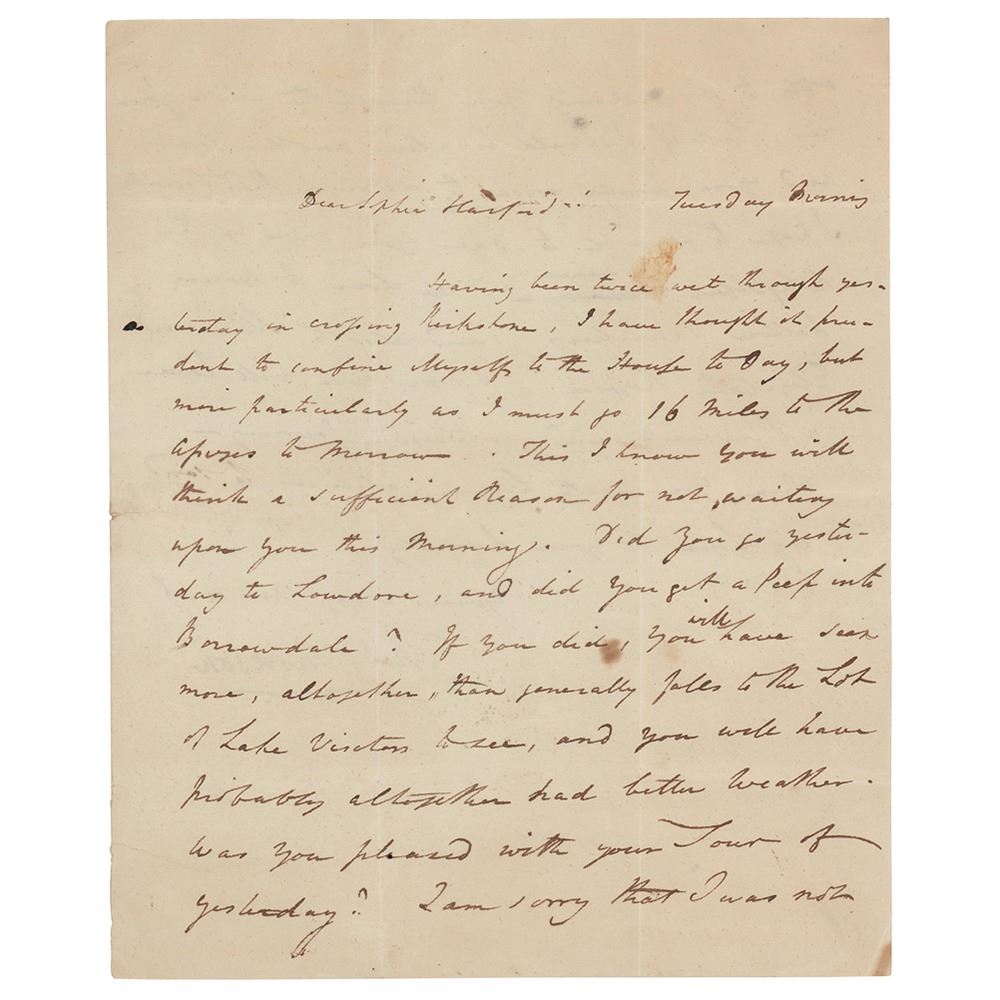 Dear Sophia Harford! Tuesday Morning
Having been twice wet through yes-
terday in crossing Kirkstone, I have thought it pru-
dent to confine Myself to the House to Day, but
more particularly as I must go 16 Miles to the
to Morrow. This I know you will
think a sufficient Reason for not waiting
upon you this Morning. Did you go yester-
day to Lowdore, and did you get a Peep into
Borrowdale? If you did, you will have seen
more, altogether, than generally falls to the Lot
of Lake Visitors to see, and you will have
probably altogether had better Weather.
Was you pleased with your Tour of
yesterday? I am sorry that I was not